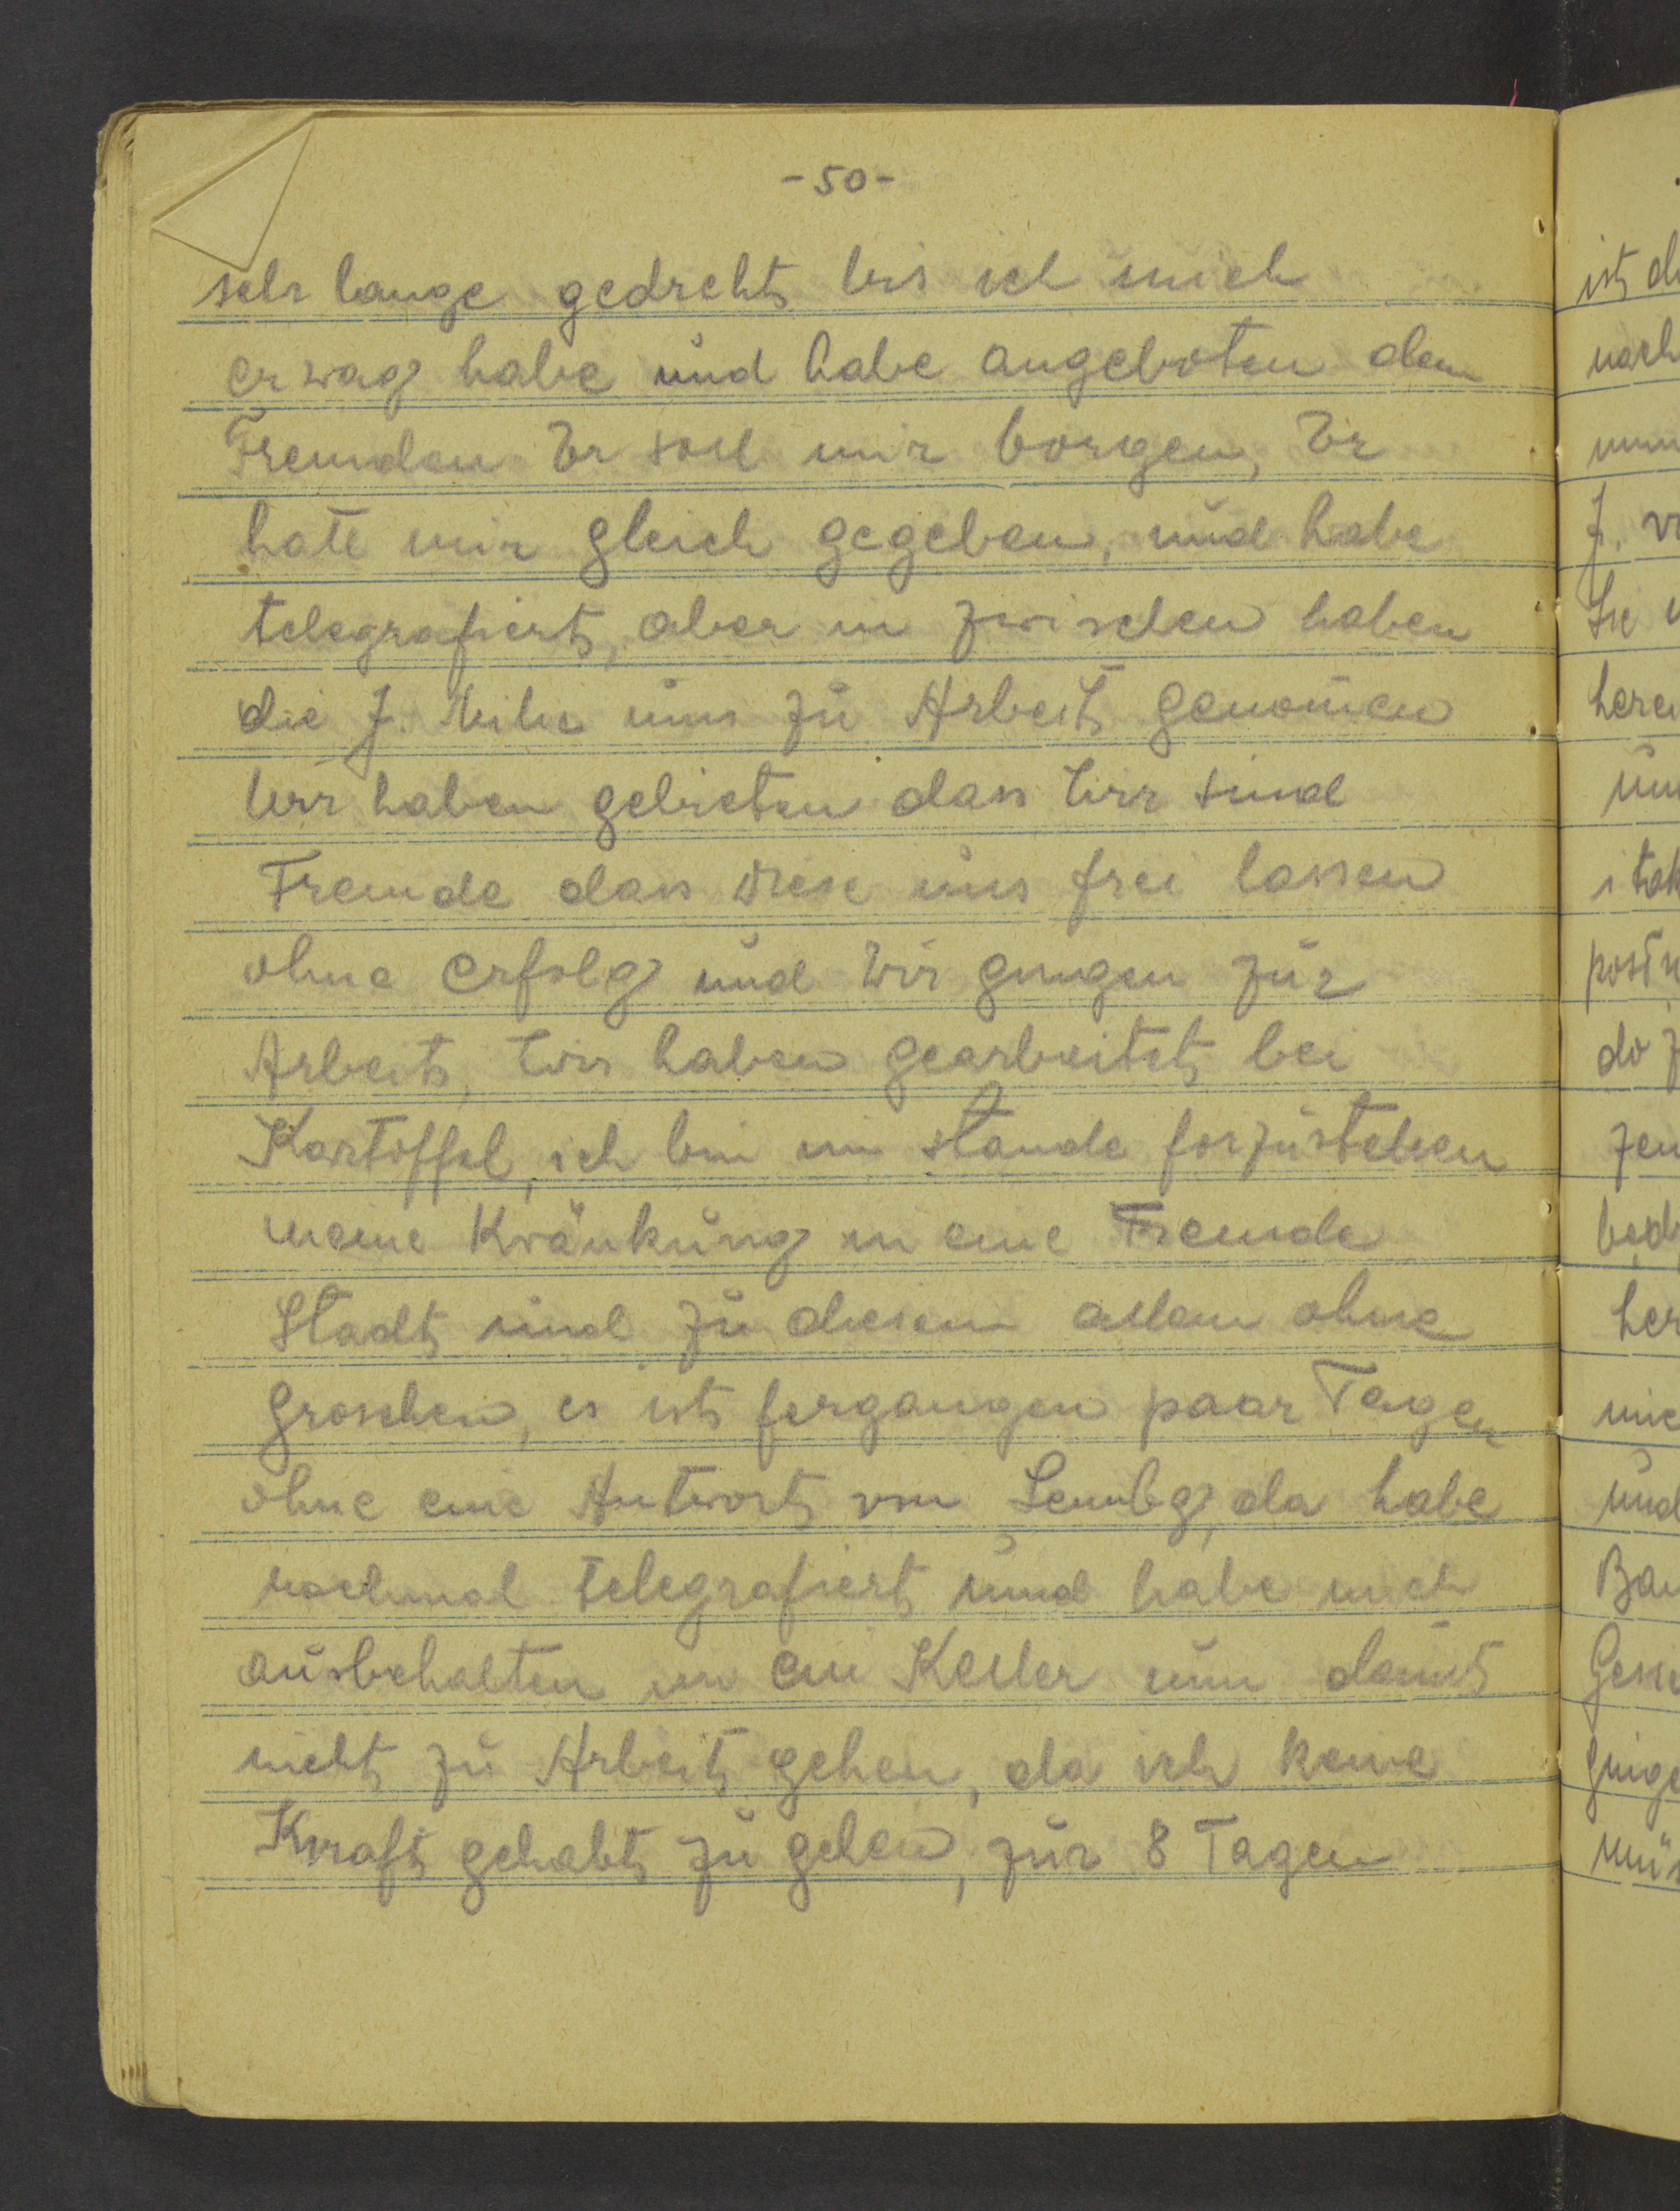 -50-
sehr lange gedreht bis ich mich
erwag habe und habe angeboten dem
Fremden Er soll mir borgen, Er
hate mir gleich gegeben, und habe
telegrafiert, aber in zwischen haben
die J. Miliz uns zu Arbeit genomen
Wir haben gebieten dass Wir sind
Fremde dass diese uns frei lassen
ohne erfolg und Wir gingen zur
Arbeit, Wir haben gearbeitet bei
Kartoffel, ich bin im stande forzustehen
meine Kränkung in eine Fremde
Stadt und zu diesem allem ohne
groschen, es ist fergangen paar Tagen
ohne eine Antwort von Lembg, da habe
nochmal telegrafiert und habe mich
ausbehalten in ein Keller um damit
nicht zu Arbeit gehen, da ich keine
Kraft gehabt zu gehen, zur 8 Tagen
ist
nach
J.
und